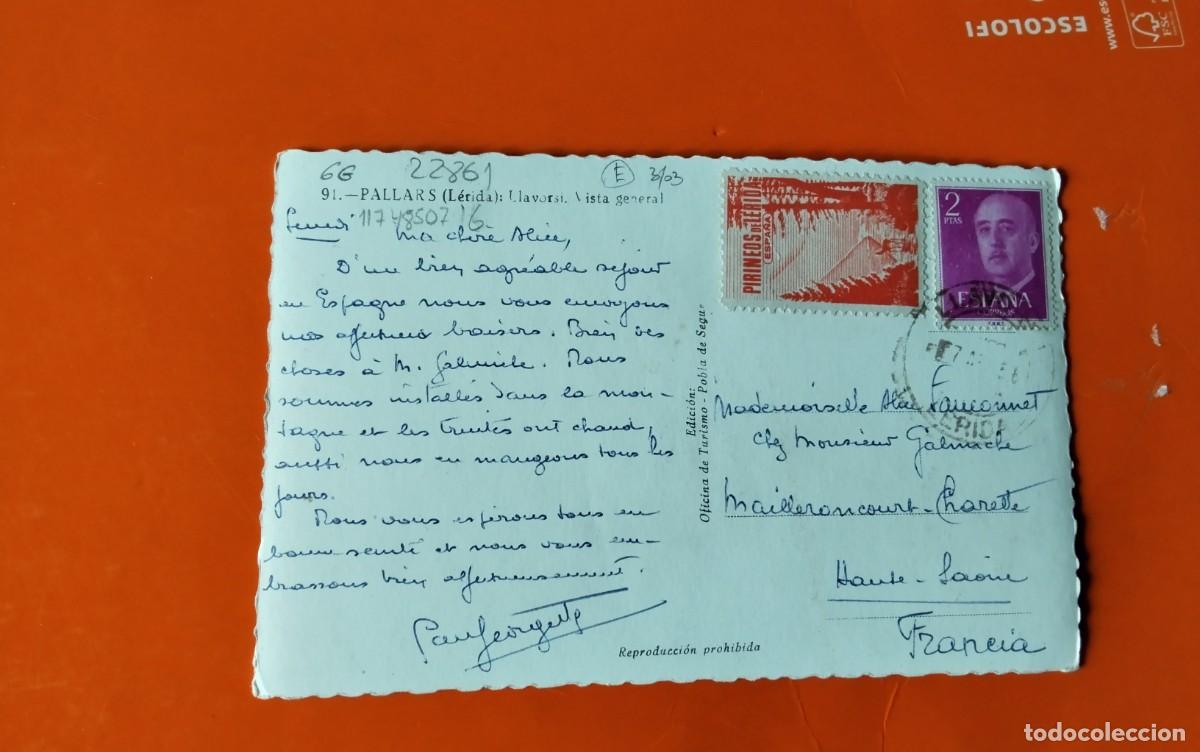 ESCOLOFI
www.es
FSC
GG 22861 E 3/03
91.—PALLARS (Lérida): Llavorsí. Vista general
11748507 16
Ma chère Alice,
D'un bien agréable séjour
en Espagne nous vous envoyons
nos affectueux baisers. Bien des
choses à M. Galmiche. Nous
sommes installés dans la mon-
tagne et les truites ont chaud,
aussi nous en mangeons tous les
jours.
Nous vous espérons tous en
bonne santé et nous vous em-
brassons bien affectueusement.
Paul Georgette
Edición:
Oficina de Turismo - Pobla de Segur
Reproducción prohibida
PIRINEOS DE LERIDA
ESPAÑA
2
PTAS
ESPAÑA
CORREOS
LERIDA
Mademoiselle Alice Fauconnet
chez Monsieur Galmiche
Mailleroncourt-Charette
Haute-Saône
Francia
todocoleccion